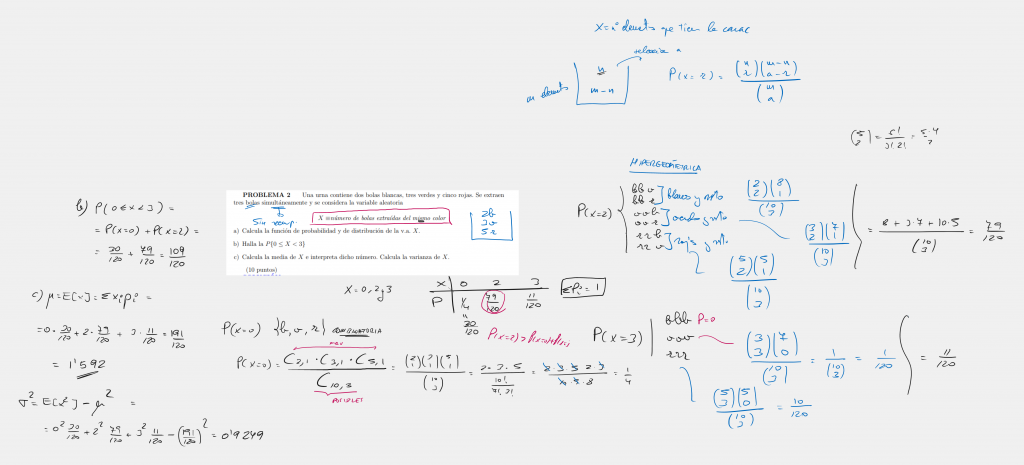 X = nº elements que tien la carac
selecciona a
n
m-n
m elements
P(X=r) = \frac{\binom{n}{r}\binom{m-n}{a-r}}{\binom{m}{a}}
\binom{5}{2} = \frac{5!}{3!·2!} = \frac{5·4}{2}
HIPERGEOMÉTRICA
PROBLEMA 2 Una urna contiene dos bolas blancas, tres verdes y cinco rojas. Se extraen
tres bolas simultáneamente y se considera la variable aleatoria
Sin reemp.
X ≡ número de bolas extraídas del mismo color
a) Calcula la función de probabilidad y de distribución de la v.a. X.
b) Halla la P{0 ≤ X < 3}
c) Calcula la media de X e interpreta dicho número. Calcula la varianza de X.
(10 puntos)
2b
3v
5r
b) P(0≤X<3) =
= P(X=0) + P(X=2) =
= \frac{30}{120} + \frac{79}{120} = \frac{109}{120}
c) μ = E[X] = Σ xi pi =
= 0·\frac{30}{120} + 2·\frac{79}{120} + 3·\frac{11}{120} = \frac{191}{120}
= 1'592
σ² = E[X²] - μ² =
= 0²\frac{30}{120} + 2²\frac{79}{120} + 3²\frac{11}{120} - (\frac{191}{120})² = 0'9249
X = 0, 2 y 3
X 0 2 3
P 1/4 \frac{79}{120} \frac{11}{120}
\frac{30}{120}
Σ Pi = 1
P(X=0) {b, v, r}
P(X=0) = \frac{C_{2,1} · C_{3,1} · C_{5,1}}{C_{10,3}} = \frac{\binom{2}{1}\binom{3}{1}\binom{5}{1}}{\binom{10}{3}} = \frac{2·3·5}{\frac{10!}{7!·3!}} = = \frac{1}{4}
POSIBLES
P(X=2)
bb v
bb r
blancas y resto
vv b
vv r
verdes y resto
rr b
rr v
rojas y resto
\frac{\binom{2}{2}\binom{8}{1}}{\binom{10}{3}}
\frac{\binom{3}{2}\binom{7}{1}}{\binom{10}{3}}
\frac{\binom{5}{2}\binom{5}{1}}{\binom{10}{3}}
= \frac{8 + 3·7 + 10·5}{\binom{10}{3}} = \frac{79}{120}
P(X=3)
bbb P=0
vvv
rrr
\frac{\binom{3}{3}\binom{7}{0}}{\binom{10}{3}} = \frac{1}{\binom{10}{3}} = \frac{1}{120}
\frac{\binom{5}{3}\binom{5}{0}}{\binom{10}{3}} = \frac{10}{120}
= \frac{11}{120}